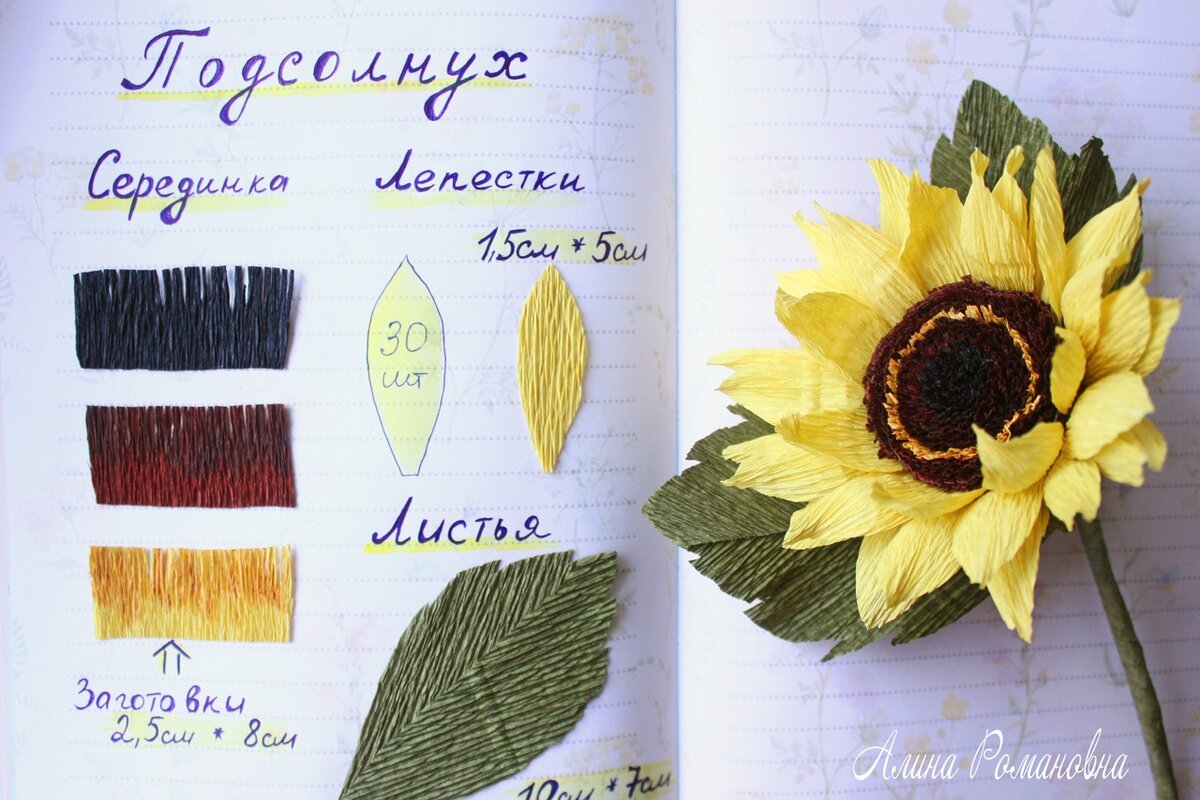 Подсолнух
Серединка
Лепестки
1,5см * 5см
30
шт
Листья
Заготовки
2,5см * 8см
10см * 7см
Алина Романовна